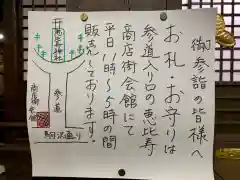 御参詣の皆様へ
お札・お守りは
参道入り口の恵比寿
商店街会館にて
平日11時〜5時の間
販売しております。
参道
商店街会館
駒沢通り